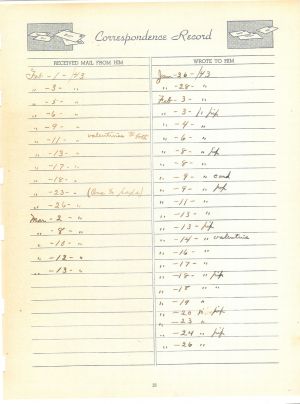 Correspondence Record
RECEIVED MAIL FROM HIM
Feb - 1 - 43
" - 3 - "
" - 5 - "
" - 6 - "
" - 9 - "
" - 11 - " valentines to both
" - 13 - "
" - 17 - "
" - 18 - "
" - 23 - "
" - 26 - "
Mar - 2 - "
" - 8 - "
" - 10 - "
" - 12 - "
" - 13 - "
WROTE TO HIM
Jan - 26 - 43
" - 28 - "
Feb - 3 - "
" - 3 - "
" - 4 - "
" - 6 - "
" - 8 - "
" - 8 - "
" - 9 - " card
" - 9 - "
" - 11 - "
" - 13 - "
" - 13 -
" - 14 - " valentine
" - 16 - "
" - 17 - "
" - 18 - "
" - 18 "
" - 19 "
" - 20 "
" - 23 "
" - 24 "
" - 26 "